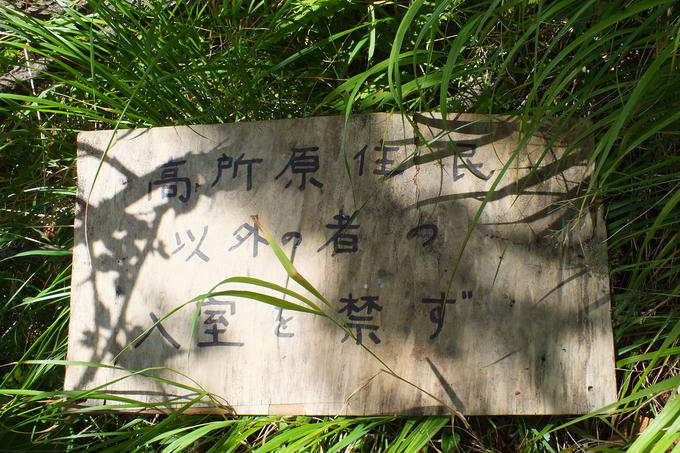 高所原住民
以外の者の
入室を禁ず